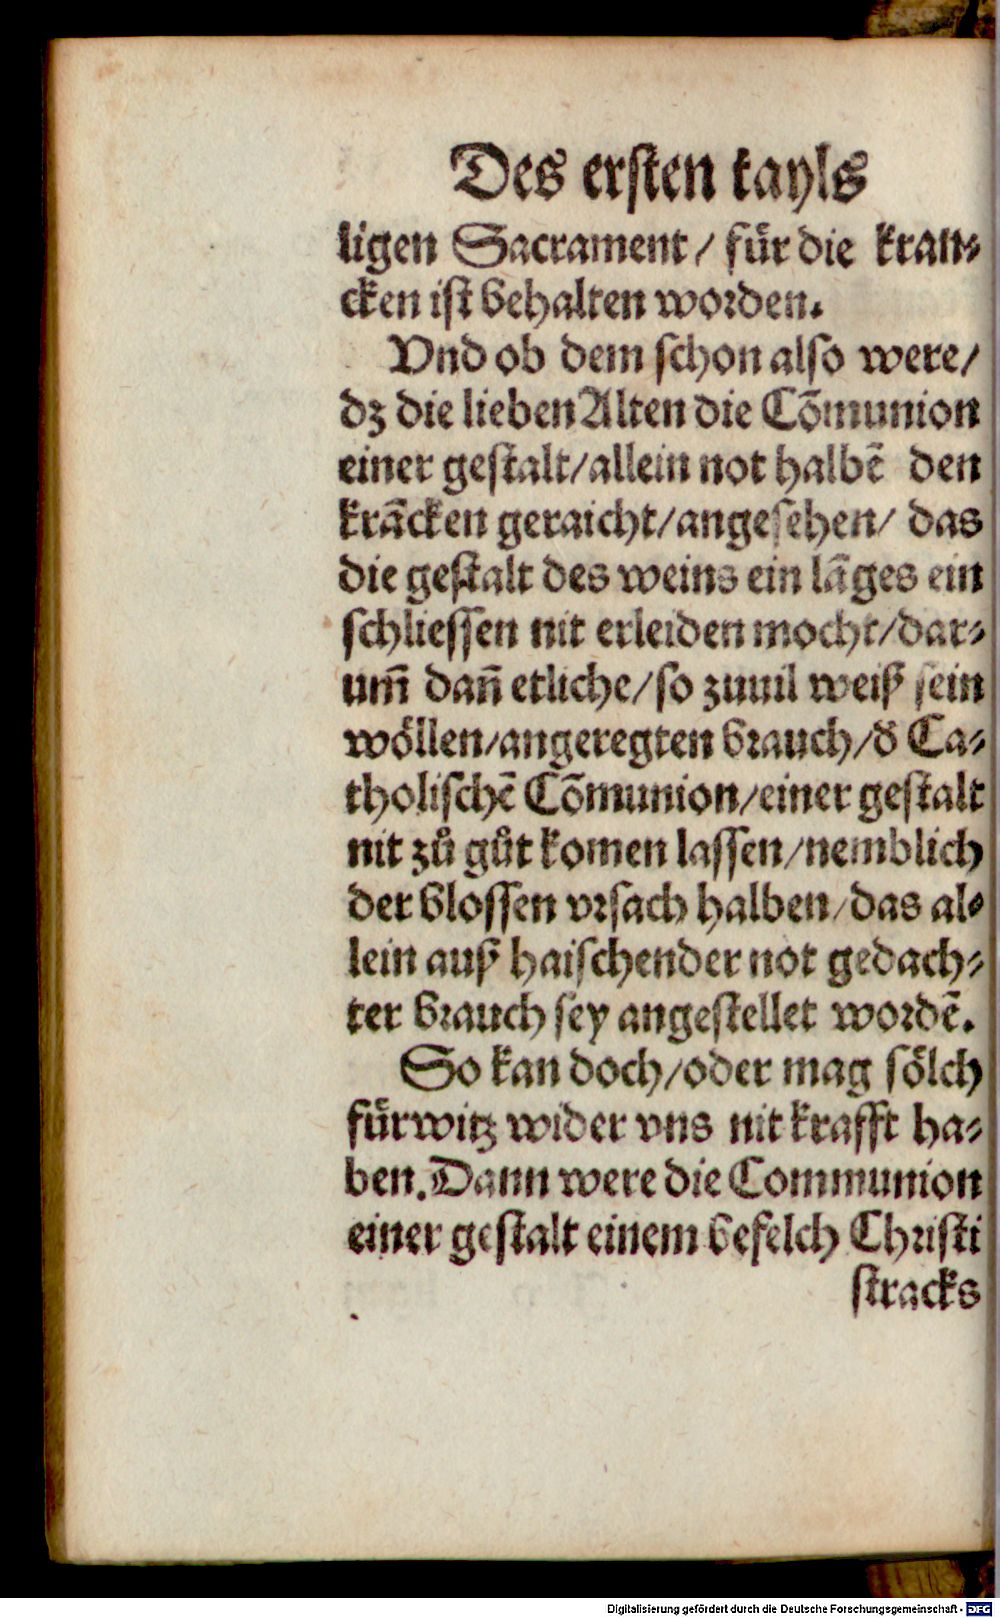 Des ersten tayls
ligen Sacrament / für die kran⸗
cken ist behalten worden.
Vnd ob dem schon also were /
dz die lieben Alten die Cõmunion
einer gestalt / allein not halbẽ den
krãcken geraicht / angesehen / das
die gestalt des weins ein lãges ein
schliessen nit erleiden mocht / dar⸗
um̃ dañ etliche / so zuuil weiß sein
wöllen / angeregten brauch / d̕ Ca⸗
tholischẽ Cõmunion / einer gestalt
nit zů gůt komen lassen / nemblich
der blossen vrsach halben / das al⸗
lein auß haischender not gedach⸗
ter brauch sey angestellet wordẽ.
So kan doch / oder mag sölch
fürwitz wider vns nit krafft ha⸗
ben. Dann were die Communion
einer gestalt einem befelch Christi
stracks
Digitalisierung gefördert durch die Deutsche Forschungsgemeinschaft - DFG